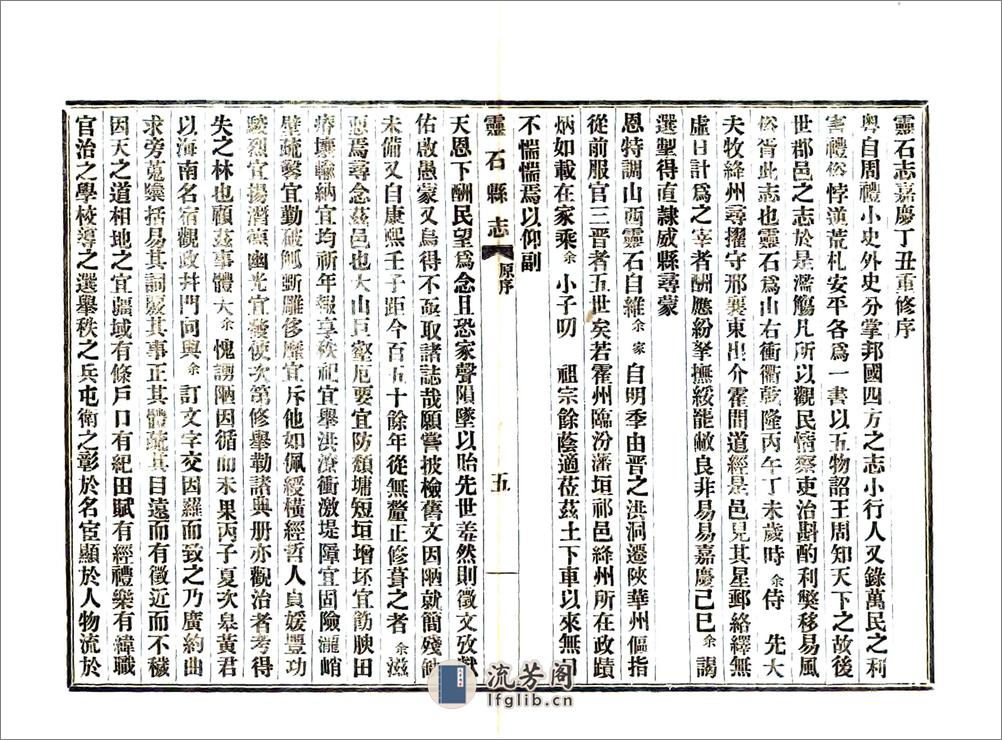 靈石志嘉慶丁丑重修序
粵自周禮小史外史分掌邦國四方之志小行人又錄萬民之利
害禮俗悖逆荒札安平各爲一書以五物詔王周知天下之故後
世郡邑之志於是濫觴凡所以觀民情察吏治斟酌利弊移易風
俗胥此志也靈石爲山右衝衢乾隆丙午丁未歲時余侍 先大
夫牧絳州尋擢守邢襄東出介霍間道經是邑見其星郵絡繹無
虛日計爲之宰者酬應紛拏撫綏龍敝良非易易嘉慶己巳余謁
選掣得直隸威縣尋蒙
恩特調山西靈石自維余家 自明季由晉之洪洞遷陝華州傴指
從前服官三晋者五世矣若霍州臨汾藩垣祁邑絳州所在政蹟
炳如載在家乘余小子叨 祖宗餘蔭適莅茲土下車以來無何
不惴惴焉以仰副
靈石縣志 原序 五
天恩下酬民望爲念且恐家聲隕墜以貽先世羞然則徵文攷獻
佑啟愚蒙又烏得不亟取諸誌哉願嘗披檢舊文因陋就簡殘缺
未備又自康熙壬子距今百五十餘年從無釐正修葺之者余滋
惡焉尋念茲邑也大山巨壑厄要宜防頹墉短垣增坏宜飭腴田
瘠壤輸納宜均祈年報享秩祀宜舉洪潦衝激堤障宜固險瀧峭
壁疏鑿宜勤破觚斲雕侈靡宜斥他如佩綬橫經哲人貞媛豐功
駿烈宜揚潛德幽光宜發使次第修舉勒諸典册亦觀治者考得
失之林也顧茲事體大余愧譾陋因循而未果丙子夏次皋黃君
以海南名宿觀政幷門同與余訂文字交因羅而致之乃廣約曲
求旁蒐櫽括易其詞覈其事正其體疏其目遠而有徵近而不穢
因天之道相地之宜疆域有條戶口有紀田賦有經禮樂有緯職
官治之學校導之選舉秩之兵屯衛之彰於名宦顯於人物流於
流芳阁
lfglib.cn